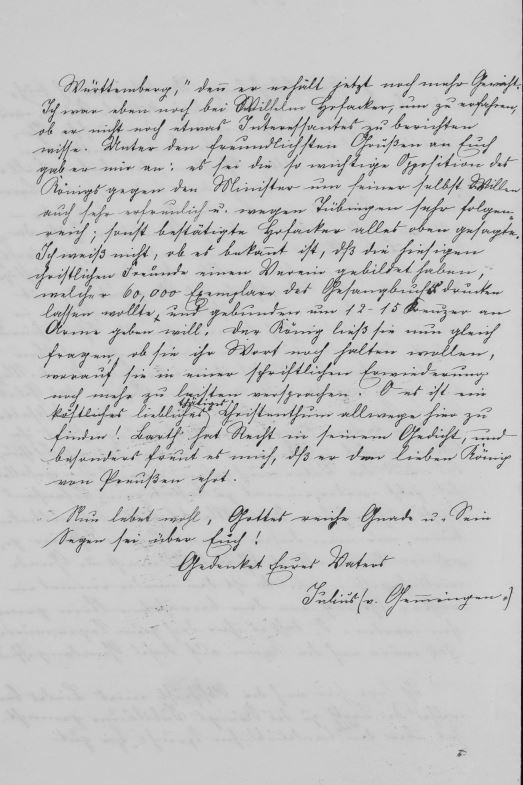 Württemberg," deñ er erhält jetzt noch mehr Gewicht.
Ich war eben noch bei Wilhelm Hofacker, um zu erfahren,
ob er nicht noch etwas Interessantes zu berichten
wisse. Unter den freundlichsten Grüßen an Euch
gab er mir an: es sei die so wichtige Opposition des
Königs gegen den Minister um seiner selbst Willen
auch sehr erfreulich u. wegen Tübingen sehr folgen-
reich; sonst bestätigte Hofacker alles oben gesagte.
Ich weiß nicht, ob es bekañt ist, dß die hiesigen
christlichen Freunde einen Verein gebildet haben,
welcher 60,000 Exemplare des Gesangbuchs drucken
lassen wollte, und gebunden um 12-15 Kreuzer an
Arme geben will. Der König ließ sie nun gleich
fragen, ob sie ihr Wort noch halten wollen,
worauf sie in einer schriftlichen Erwiederung
noch mehr zu leisten versprachen. O es ist ein
köstliches liebliches thätiges Christenthum allwege hier zu
finden! Barth hat Recht in seinem Gedicht, und
besonders freut es mich, dß er den lieben König
von Preußen ehrt.
Nun lebet wohl, Gottes reiche Gnade u. Sein
Segen sei über Euch!
Gedenket Eures Vaters
Julius (v. Gem̃ingen.)